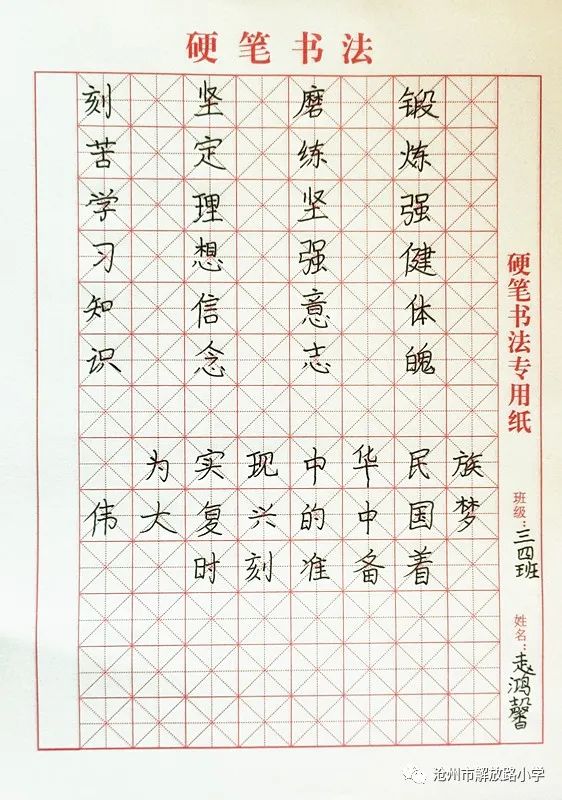 硬笔书法
刻苦学习知识
坚定理想信念
磨练坚强意志
锻炼强健体魄
为实现中华民族
伟大复兴的中国梦
时刻准备着
硬笔书法专用纸
班级:三四班
姓名:赵鸿馨
沧州市解放路小学